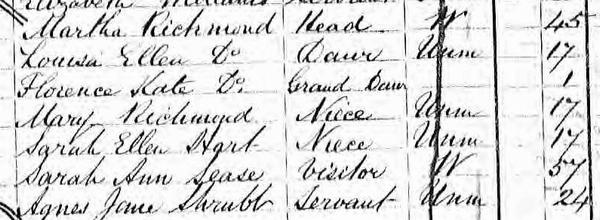 Elizabeth Servant
Martha Richmond Head W 45
Louisa Ellen Do Daur Unm 17
Florence Kate Do Grand Daur 1
Mary Richmond Niece Unm 17
Sarah Ellen Hart Niece Unm 17
Sarah Ann Lease Visitor W 57
Agnes Jane Shrubb Servant Unm 24